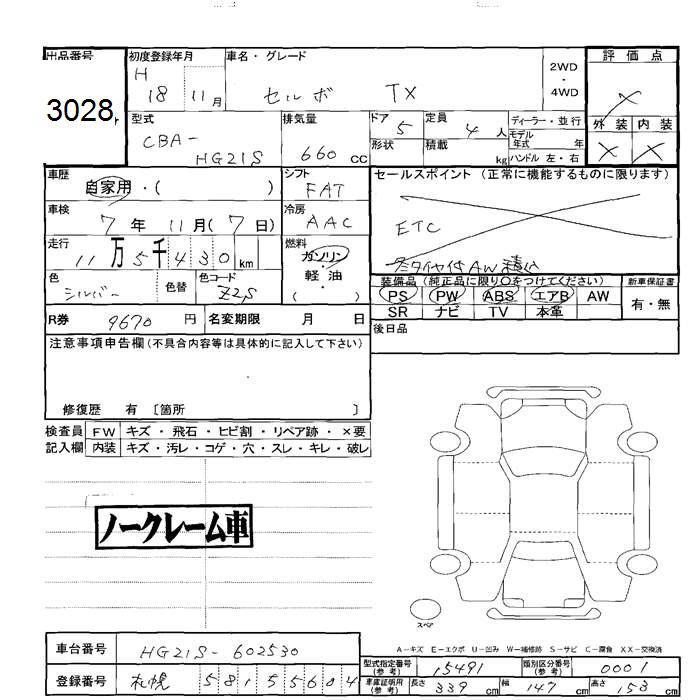 出品番号 初度登録年月 車名・グレード 評価点
3028
H 18 11月 セルボ TX 2WD・4WD ×
型式 排気量 ドア 定員 ディーラー・並行 外装 内装
CBA-HG21S 660CC 5 4人 モデル年式 年 × ×
形状 積載 kg ハンドル 左・右
車歴 シフト セールスポイント (正常に機能するものに限ります)
自家用・( ) FAT
車検 7年 11月(7日) 冷房 AAC ETC
走行 11万5千430km 燃料 ガソリン・軽油 ( )
タイヤ付AW積込
色 シルバー 色替 色コード Z2S
装備品 (純正品に限り○をつけてください) 新車保証書
PS PW ABS エアB AW 有・無
SR ナビ TV 本革
R券 9670円 名変期限 月 日 後日品
注意事項申告欄(不具合内容等は具体的に記入して下さい)
修復歴 有 [箇所 ]
検査員 FW キズ・飛石・ヒビ割・リペア跡・×要
記入欄 内装 キズ・汚レ・コゲ・穴・スレ・キレ・破レ
ノークレーム車
スペア
A-キズ E-エクボ U-凹み W-補修跡 S-サビ C-腐食 XX-交換済
車台番号 HG21S-602530
型式指定番号(参考) 15491 類別区分番号(参考) 0001
登録番号 札幌 58155604
車庫証明用(参考) 長さ 339cm 幅 147cm 高さ 153cm